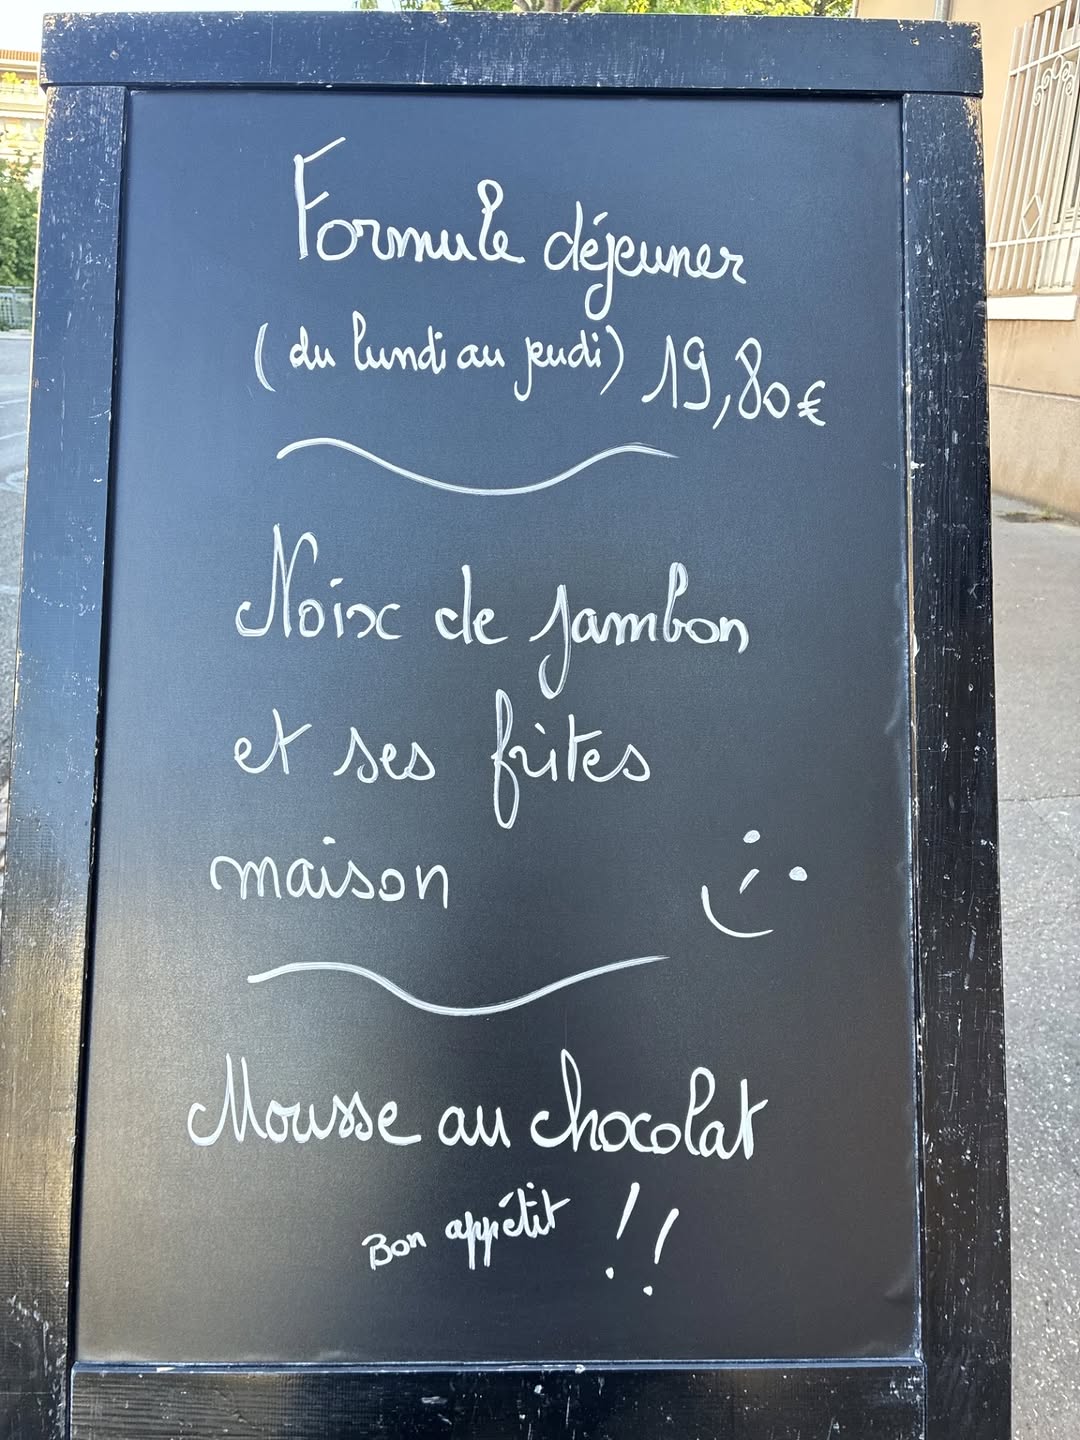 Formule déjeuner
(du lundi au jeudi) 19,80€
Noix de jambon
et ses frites
maison
Mousse au chocolat
Bon appétit !!